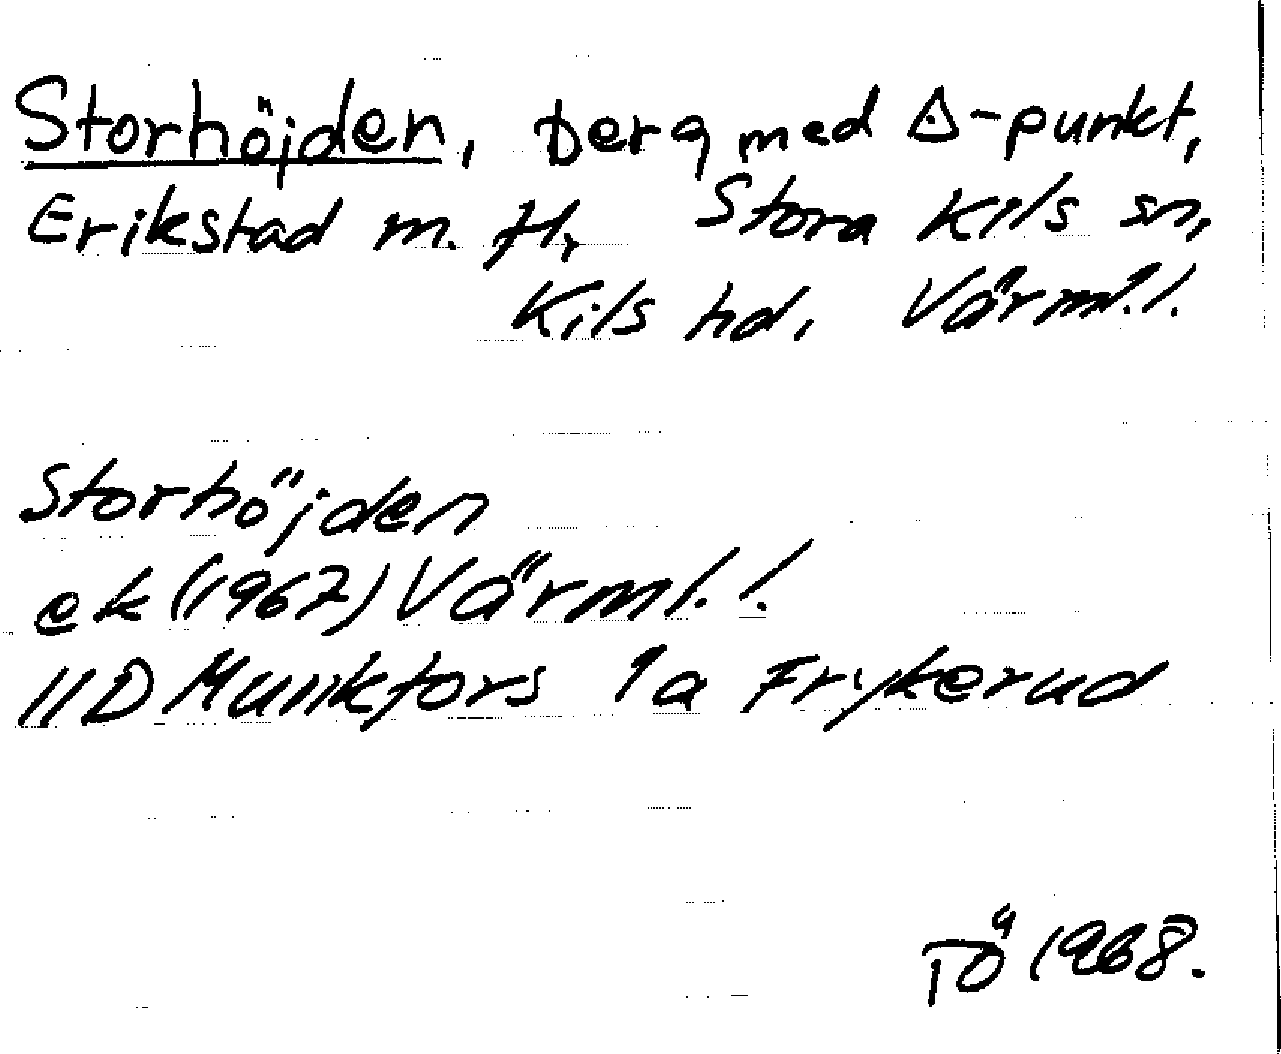 Storhöjden, berg med △-punkt,
Erikstad m. fl., Stora Kils sn,
Kils hd, Värml.l.
Storhöjden
ek (1967) Värml. l.
11D Munkfors 1a Frykerud
TÖ 1968.